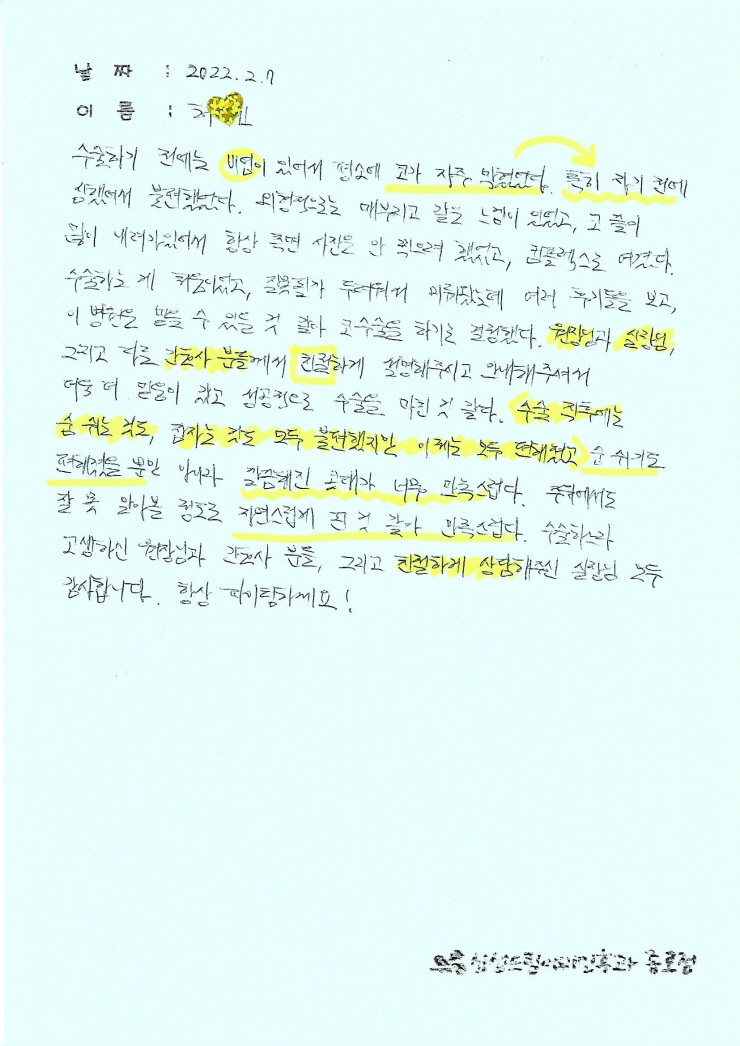 날 짜 : 2022. 2. 7
이 름 :
수술하기 전에는 비염이 있어서 평소에 코가 자주 막혔었다. 특히 자기 전에
심했어서 불편했었다. 외형적으로는 매부리코 같은 느낌이 있었고, 코 끝이
많이 내려가있어서 항상 측면 사진은 안 찍으려 했었고, 콤플렉스로 여겼다.
수술하는 게 처음이었고, 잘못될까 두려워서 미뤄왔는데 여러 후기들을 보고,
이 병원은 믿을 수 있을 것 같아 코수술을 하기로 결정했다. 원장님과 실장님,
그리고 다른 간호사 분들께서 친절하게 설명해주시고 안내해주셔서
더욱 더 믿음이 갔고 성공적으로 수술을 마친 것 같다. 수술 직후에는
숨 쉬는 것도, 잠자는 것도 모두 불편했지만 이제는 모두 편해졌고 숨 쉬기도
편해졌을 뿐만 아니라 깔끔해진 콧대가 너무 만족스럽다. 주위에서도
잘 못 알아볼 정도로 자연스럽게 된 것 같아 만족스럽다. 수술하느라
고생하신 원장님과 간호사 분들, 그리고 친절하게 상담해주신 실장님 모두
감사합니다. 항상 파이팅하세요!
삼성드림이비인후과 종로점